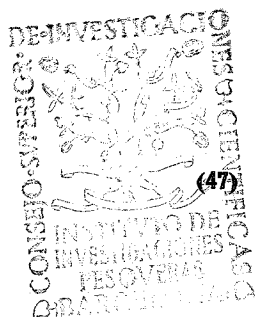 CONSEJO·SVPERIOR·
DE·INVESTIGACIONES
CIENTIFICAS
(47)
INSTITVTO DE
INVESTIGACIONES
PESQVERAS
BARCELONA